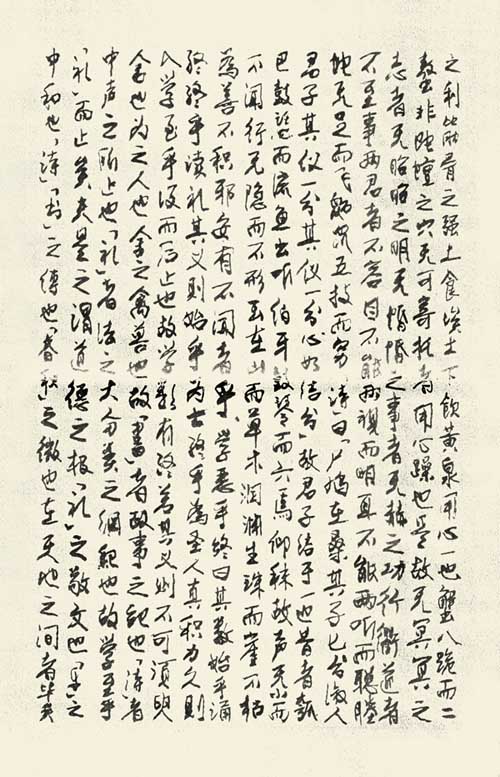 之利筋骨之强上食埃土下饮黄泉用心一也蟹八跪而二
螯非蛇蟺之穴无可寄托者用心躁也是故无冥冥之
志者无昭昭之明无惛惛之事者无赫之功行衢道者
不至事两君者不容目不能两视而明耳不能两听而聪螣
蛇无足而飞鼫鼠五技而穷「诗」曰「尸鸠在桑其子七兮淑人
君子其仪一兮其仪一兮心如结兮」故君子结于一也昔者瓠
巴鼓瑟而流鱼出听伯牙鼓琴而六马仰秣故声无小而
不闻行无隐而不形玉在山而草木润渊生珠而崖不枯
为善不积邪安有不闻者乎学恶乎终曰其数始乎诵
经终乎读礼其义则始乎为士终乎为圣人真积力久则
入学至乎没而后止也故学数有终若其义则不可须臾
舍也为之人也舍之禽兽也故「书」者政事之纪也「诗」者
中声之所止也「礼」者法之大分类之纲纪也故学至乎
「礼」而止矣夫是之谓道德之极「礼」之敬文也「乐」之
中和也「诗」「书」之博也「春秋」之微也在天地之间者毕矣